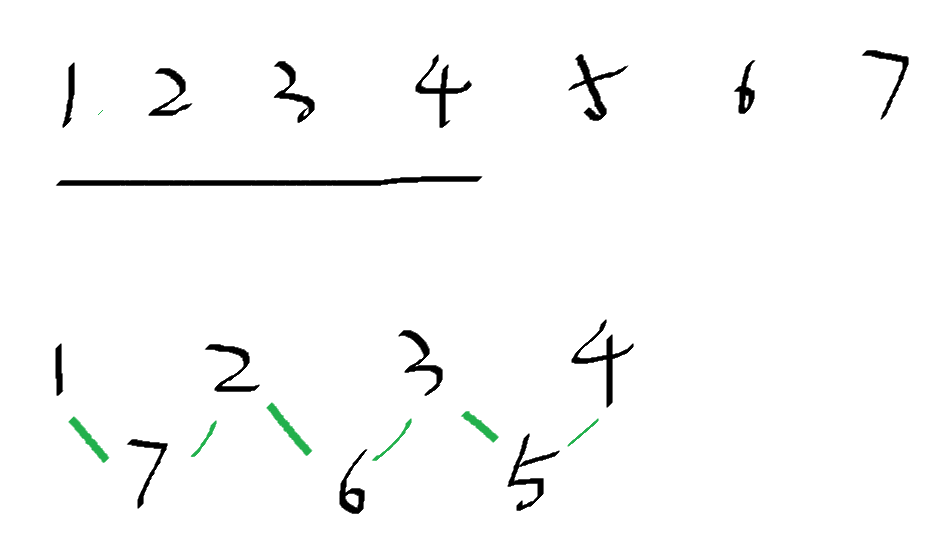 1 2 3 4 5 6 7
1 2 3 4
7 6 5